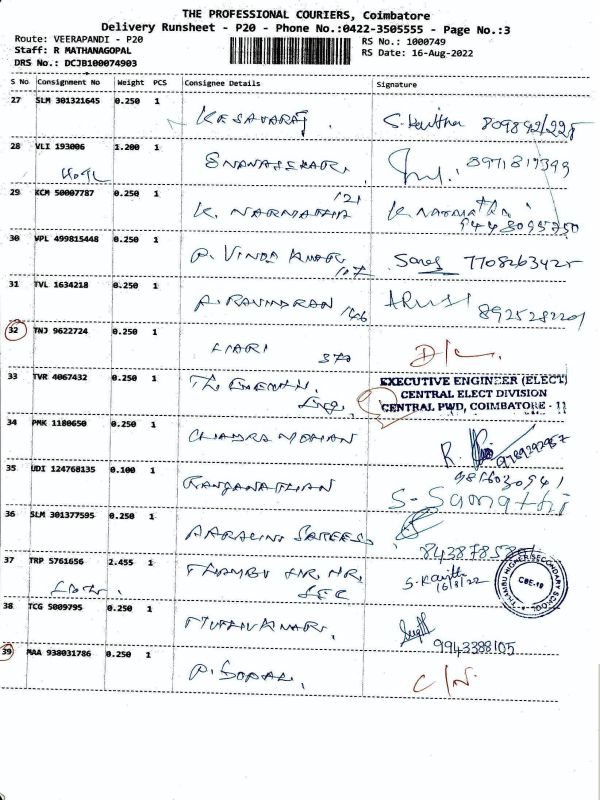 THE PROFESSIONAL COURIERS, Coimbatore
Delivery Runsheet - P20 - Phone No.:0422-3505555 - Page No.:3
Route: VEERAPANDI - P20
RS No.: 1000749
Staff: R MATHANAGOPAL
RS Date: 16-Aug-2022
DRS No.: DCJB100074903
S No Consignment No Weight PCS Consignee Details Signature
27 SLM 301321645 0.250 1 KESAVARAJ
28 VLI 193006 1.200 1
29 KCM 50007787 0.250 1 K. NARMATHA 121
30 VPL 499815448 0.250 1 P. VINOD KUMAR 107 7708263425
31 TVL 1634218 0.250 1 P. RAVINDRAN 146 8925282201
32 TNJ 9622724 0.250 1 HARI 370 D/L
33 TVR 4067432 0.250 1 EXECUTIVE ENGINEER (ELECT)
CENTRAL ELECT DIVISION
CENTRAL PWD, COIMBATORE - 11
34 PMK 1180650 0.250 1 CHANDRA MOHAN
35 UDI 124768135 0.100 1 RANGANATHAN
36 SLM 301377595 0.250 1
37 TRP 5761656 2.455 1 THAMBU HR. HR. SEC 16/8/22
THAMBU HIGHER SECONDARY SCHOOL
CBE-19
38 TCG 5009795 0.250 1 MUTHUKUMAR. 9943388105
39 MAA 938031786 0.250 1 P. GOPAL. C/N.